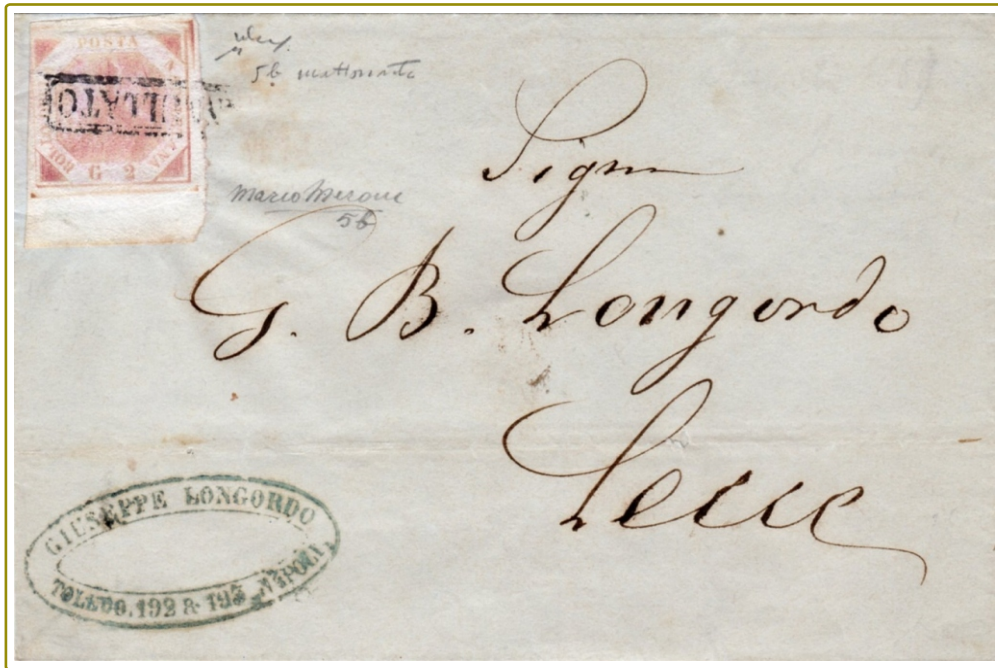 POSTA NA
BOL G 2 ANA
ANNULLATO
5b mattonato
Mario Merone
5b
Sign
G. B. Longordo
Lecce
GIUSEPPE LONGORDO
TOLEDO. 192 & 193 NAPOLI